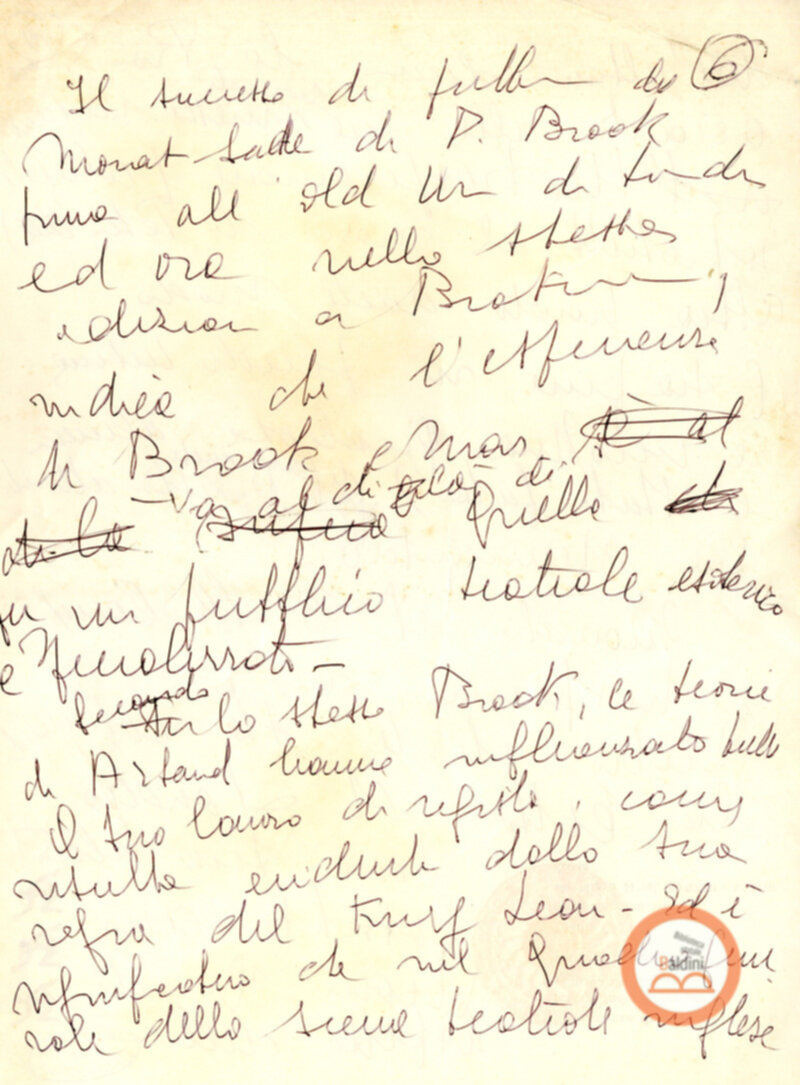 6
Il successo di pubblico del
Marat Sade di P. Brook
prima all'Old Vic di Londra
ed ora nello stesso
edizione a Broadway,
indica che l'esperienza
di Brook e Marowitz è al
- va al di là di
di là quello
un pubblico teatrale esoterico
e specializzato -
Secondo lo stesso Brook, le teorie
di Artaud hanno influenzato tutto
il suo lavoro di regista, come
risulta evidente dalla sua
regia del King Lear - Ed è
significativo che nel quadro
della scena teatrale inglese
Biblioteca
Baldini